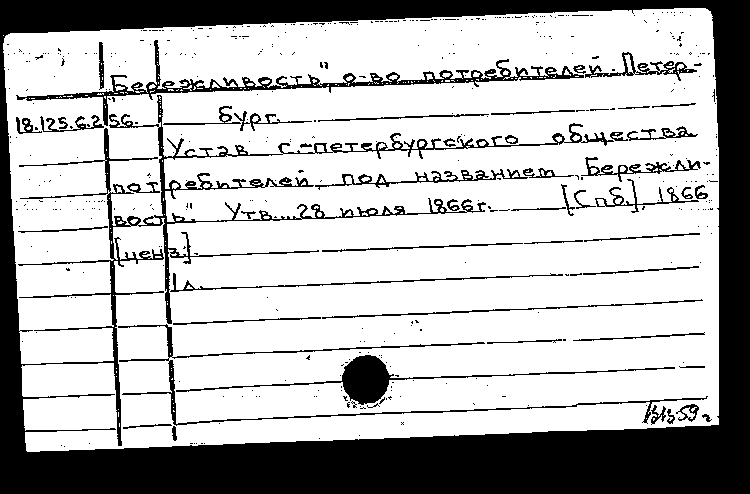 "Бережливость", о-во потребителей. Петер-
18.125.6.256. бург.
Устав с.-петербургского общества
потребителей под названием „Бережли-
вость". Утв... 28 июля 1866 г. [Спб.], 1866
[ценз.].
1 л.
59 г.